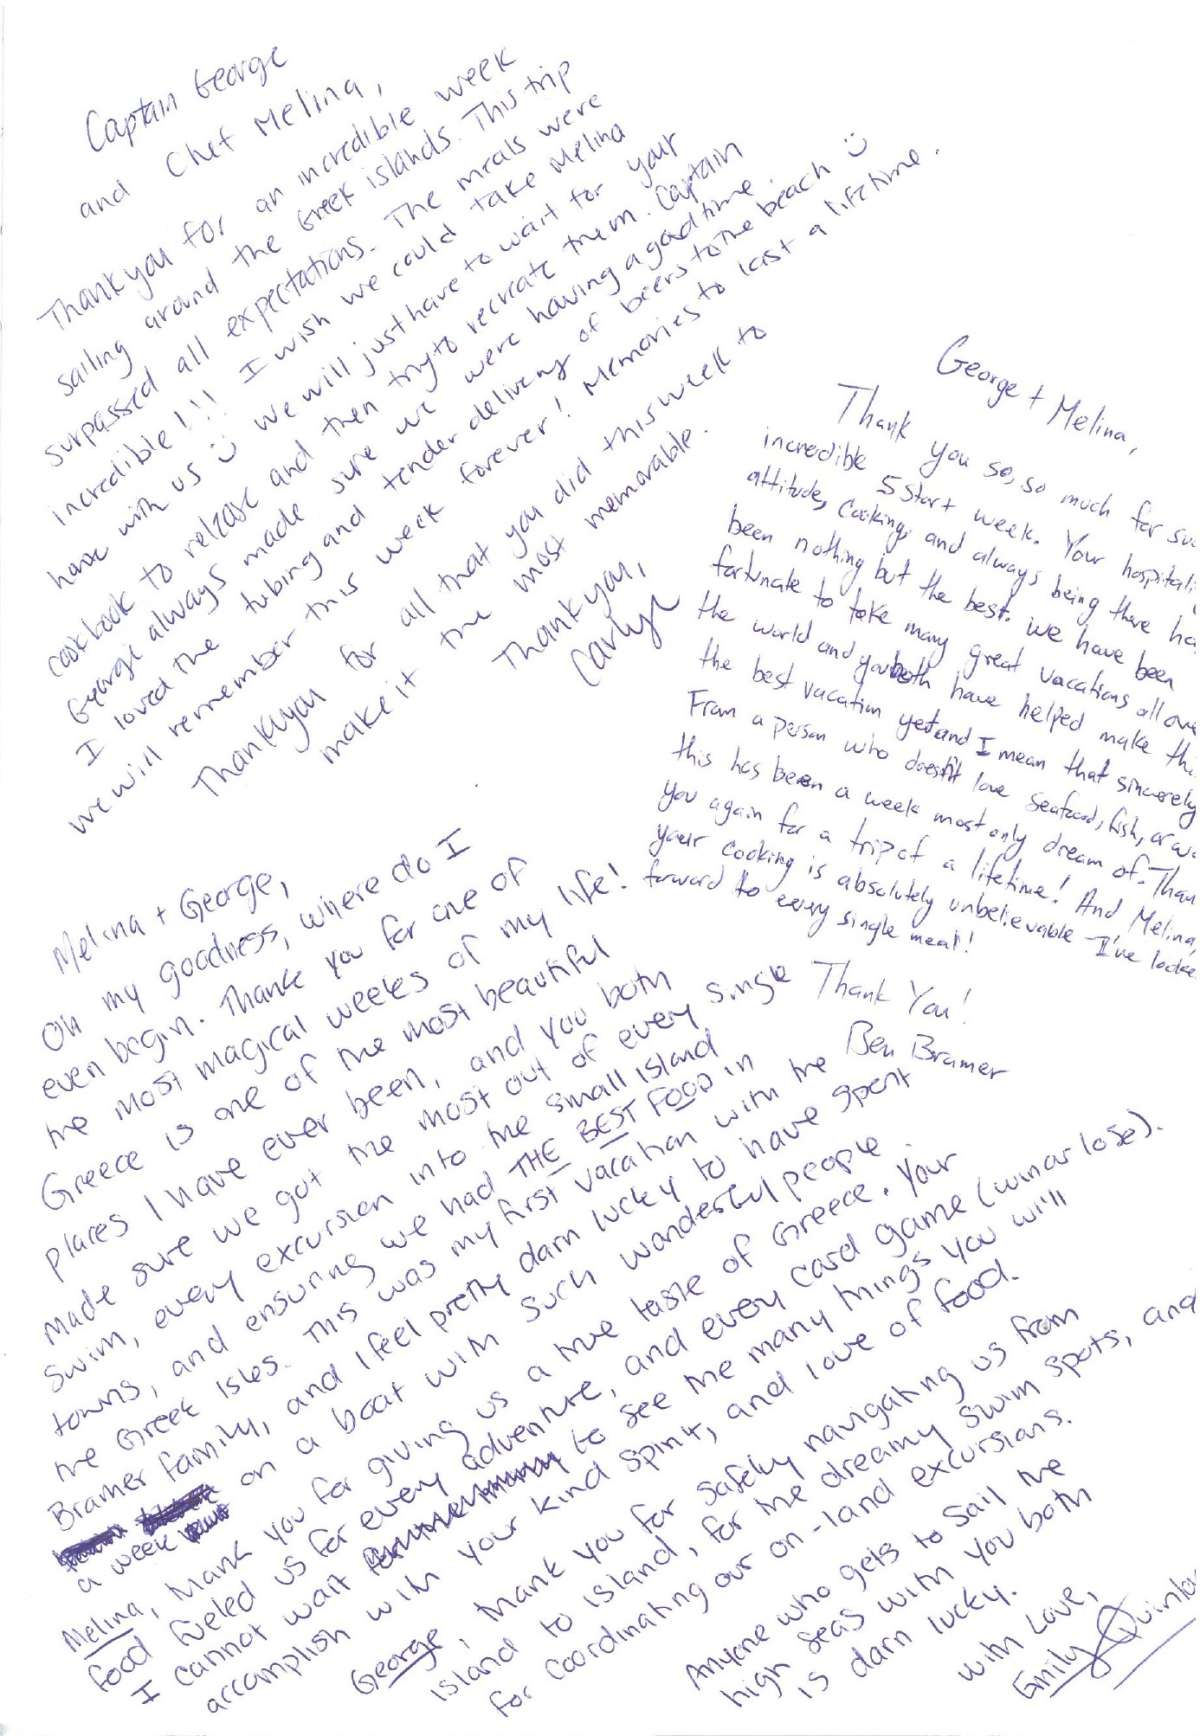 Captain George
and Chef Melina,
Thank you for an incredible week
sailing around the Greek islands. This trip
surpassed all expectations. The meals were
incredible!!! I wish we could take Melina
home with us :) We will just have to wait for your
cookbook to release and then try to recreate them. Captain
George always made sure we were having a good time.
I loved the tubing and tender delivery of beers to the beach :)
we will remember this week forever! Memories to last a lifetime.
Thank you for all that you did this week to
make it the most memorable.
Thank you,
Carlye
George + Melina,
Thank you so, so much for
incredible 5 start week. Your
attitude, cooking, and always being there
been nothing but the best. We have been
fortunate to take many great vacations all
the world and you both have helped make
the best vacation yet and I mean that sincerely
From a person who doesn't love seafood, fish, or
this has been a week most only dream of.
you again for a trip of a lifetime! And Melina,
your cooking is absolutely unbelievable - I've
forward to every single meal!
Thank You!
Ben Bramer
Melina + George,
Oh my goodness, where do I
even begin. Thank you for one of
the most magical weeks of my life!
Greece is one of the most beautiful
places I have ever been, and you both
made sure we got the most out of every single
swim, every excursion into the small island
towns, and ensuring we had THE BEST FOOD in
the Greek Isles. This was my first vacation with the
Bramer family, and I feel pretty darn lucky to have spent
a week on a boat with such wonderful people
Melina, thank you for giving us a true taste of Greece. Your
food fueled us for every adventure, and every card game (win or lose).
I cannot wait to see the many things you will
accomplish with your kind spirit, and love of food.
George, thank you for safely navigating us from
island to island, for the dreamy swim spots, and
for coordinating our on-land excursions.
Anyone who gets to sail the
high seas with you both
is darn lucky.
With Love,
Emily